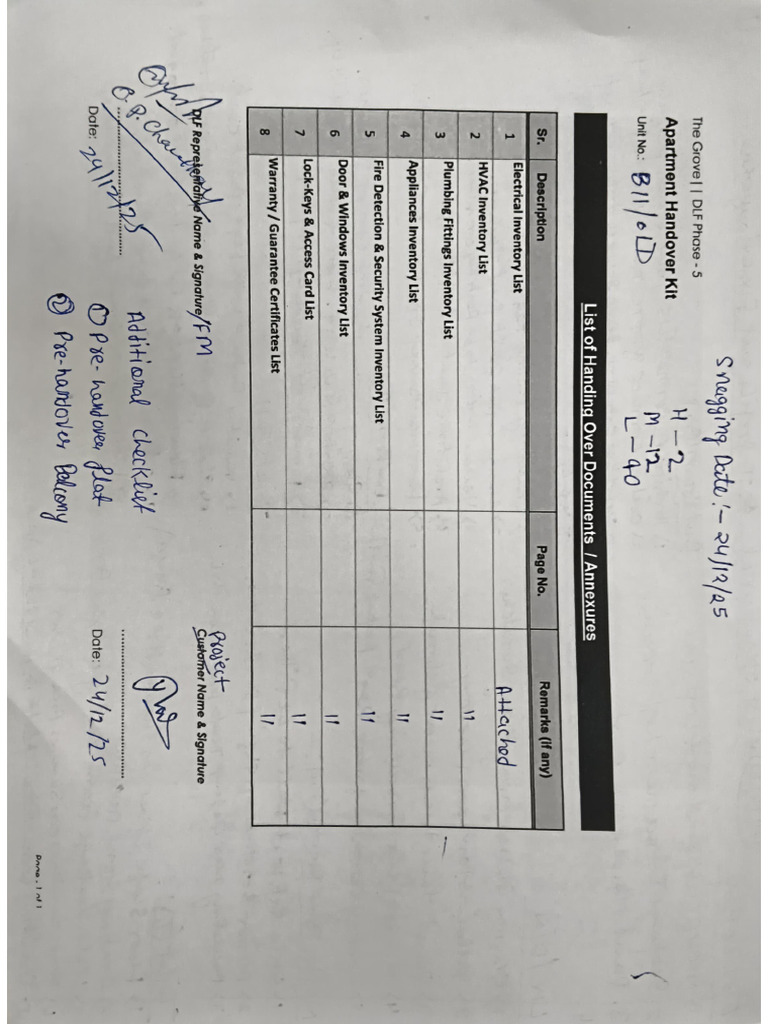 Snagging Date:- 24/12/25
The Grove | | DLF Phase - 5
Apartment Handover Kit
Unit No.: B11/01D
H - 2
M - 12
L - 40
List of Handing Over Documents / Annexures
Sr. Description Page No. Remarks (If any)
1 Electrical Inventory List Attached
2 HVAC Inventory List 11
3 Plumbing Fittings Inventory List 11
4 Appliances Inventory List 11
5 Fire Detection & Security System Inventory List 11
6 Door & Windows Inventory List 11
7 Lock-Keys & Access Card List 11
8 Warranty / Guarantee Certificates List 11
DLF Representative Name & Signature/FM
Project
Customer Name & Signature
Date: 24/12/25
Date: 24/12/25
Additional checklist
① Pre-handover flat
② Pre-handover Balcony
Page - 1 of 1